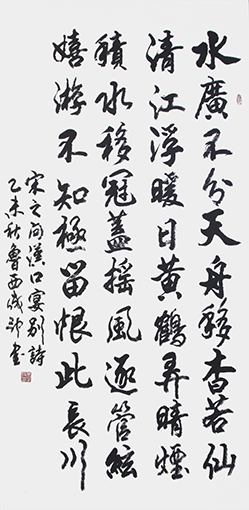 水廣不分天舟移杳若仙
清江浮暖日黄鶴弄晴煙
積水移冠蓋摇風逐管絃
嬉游不知極留恨此長川
宋之问漢口宴别詩
乙未秋魯西